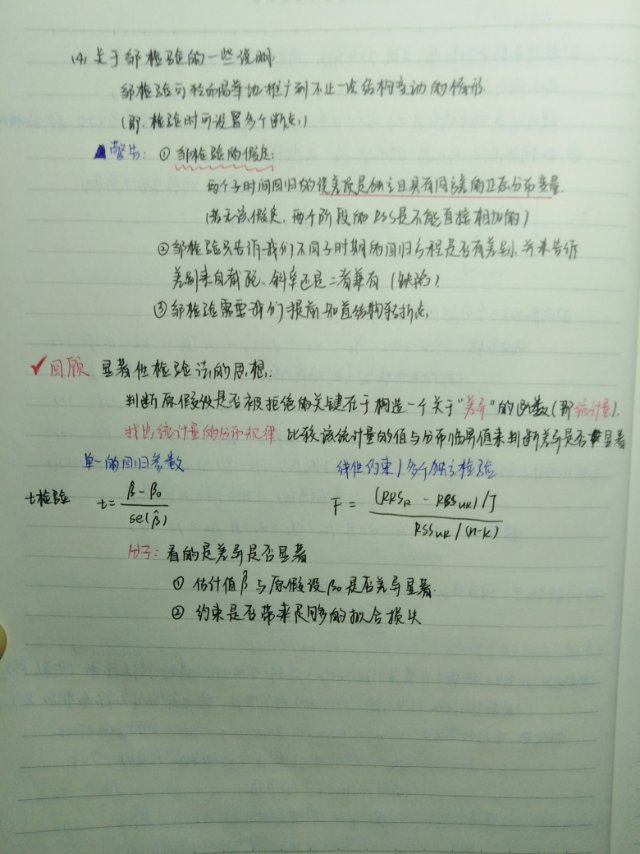 (4) 关于邹检验的一些说明
邹检验可轻而易举地推广到不止一次结构变动的情形
(即:检验时可设置多个断点)
警告: ① 邹检验的假定:
两个子时间回归的误差项是独立且具有同方差的正态分布变量.
(若无该假定, 两个阶段的RSS是不能直接相加的)
②邹检验只告诉我们不同子时期的回归方程是否有差别, 并未告诉
差别来自截距、斜率还是二者兼有 (缺陷)
③邹检验需要我们提前知道结构转折点.
✓回顾 显著性检验法的思想:
判断原假设是否被拒绝的关键在于构造一个关于"差异"的函数(即统计量).
找出统计量的分布规律, 比较该统计量的值与分布临界值来判断差异是否显著
单一的回归参数 线性约束/多个独立检验
t检验 t = (β̂ - β₀) / se(β̂) F = [(RRS_R - RSS_UR)/J] / [RSS_UR/(n-k)]
分子: 看的是差异是否显著
① 估计值β̂与原假设β₀是否差异显著.
② 约束是否带来足够的拟合损失